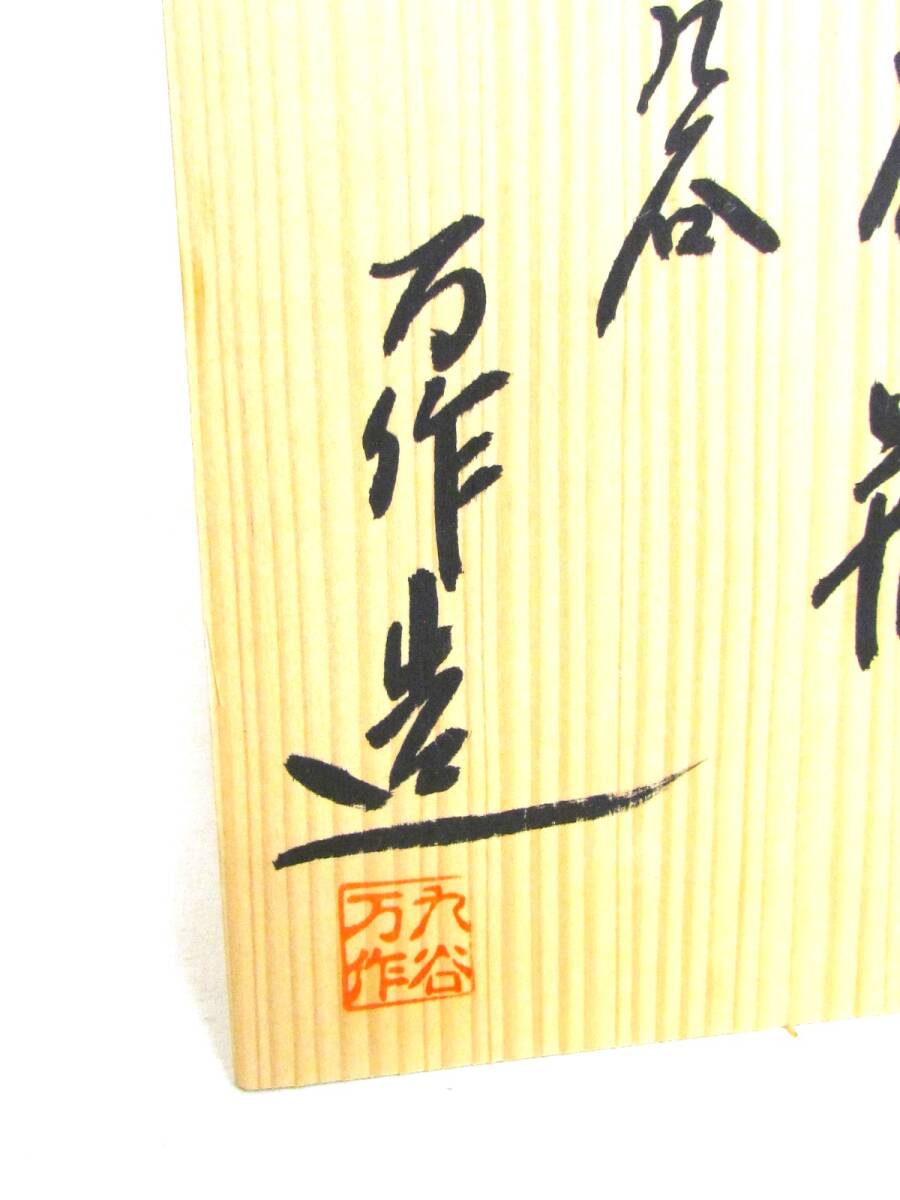 九谷
万作造
九谷
万作